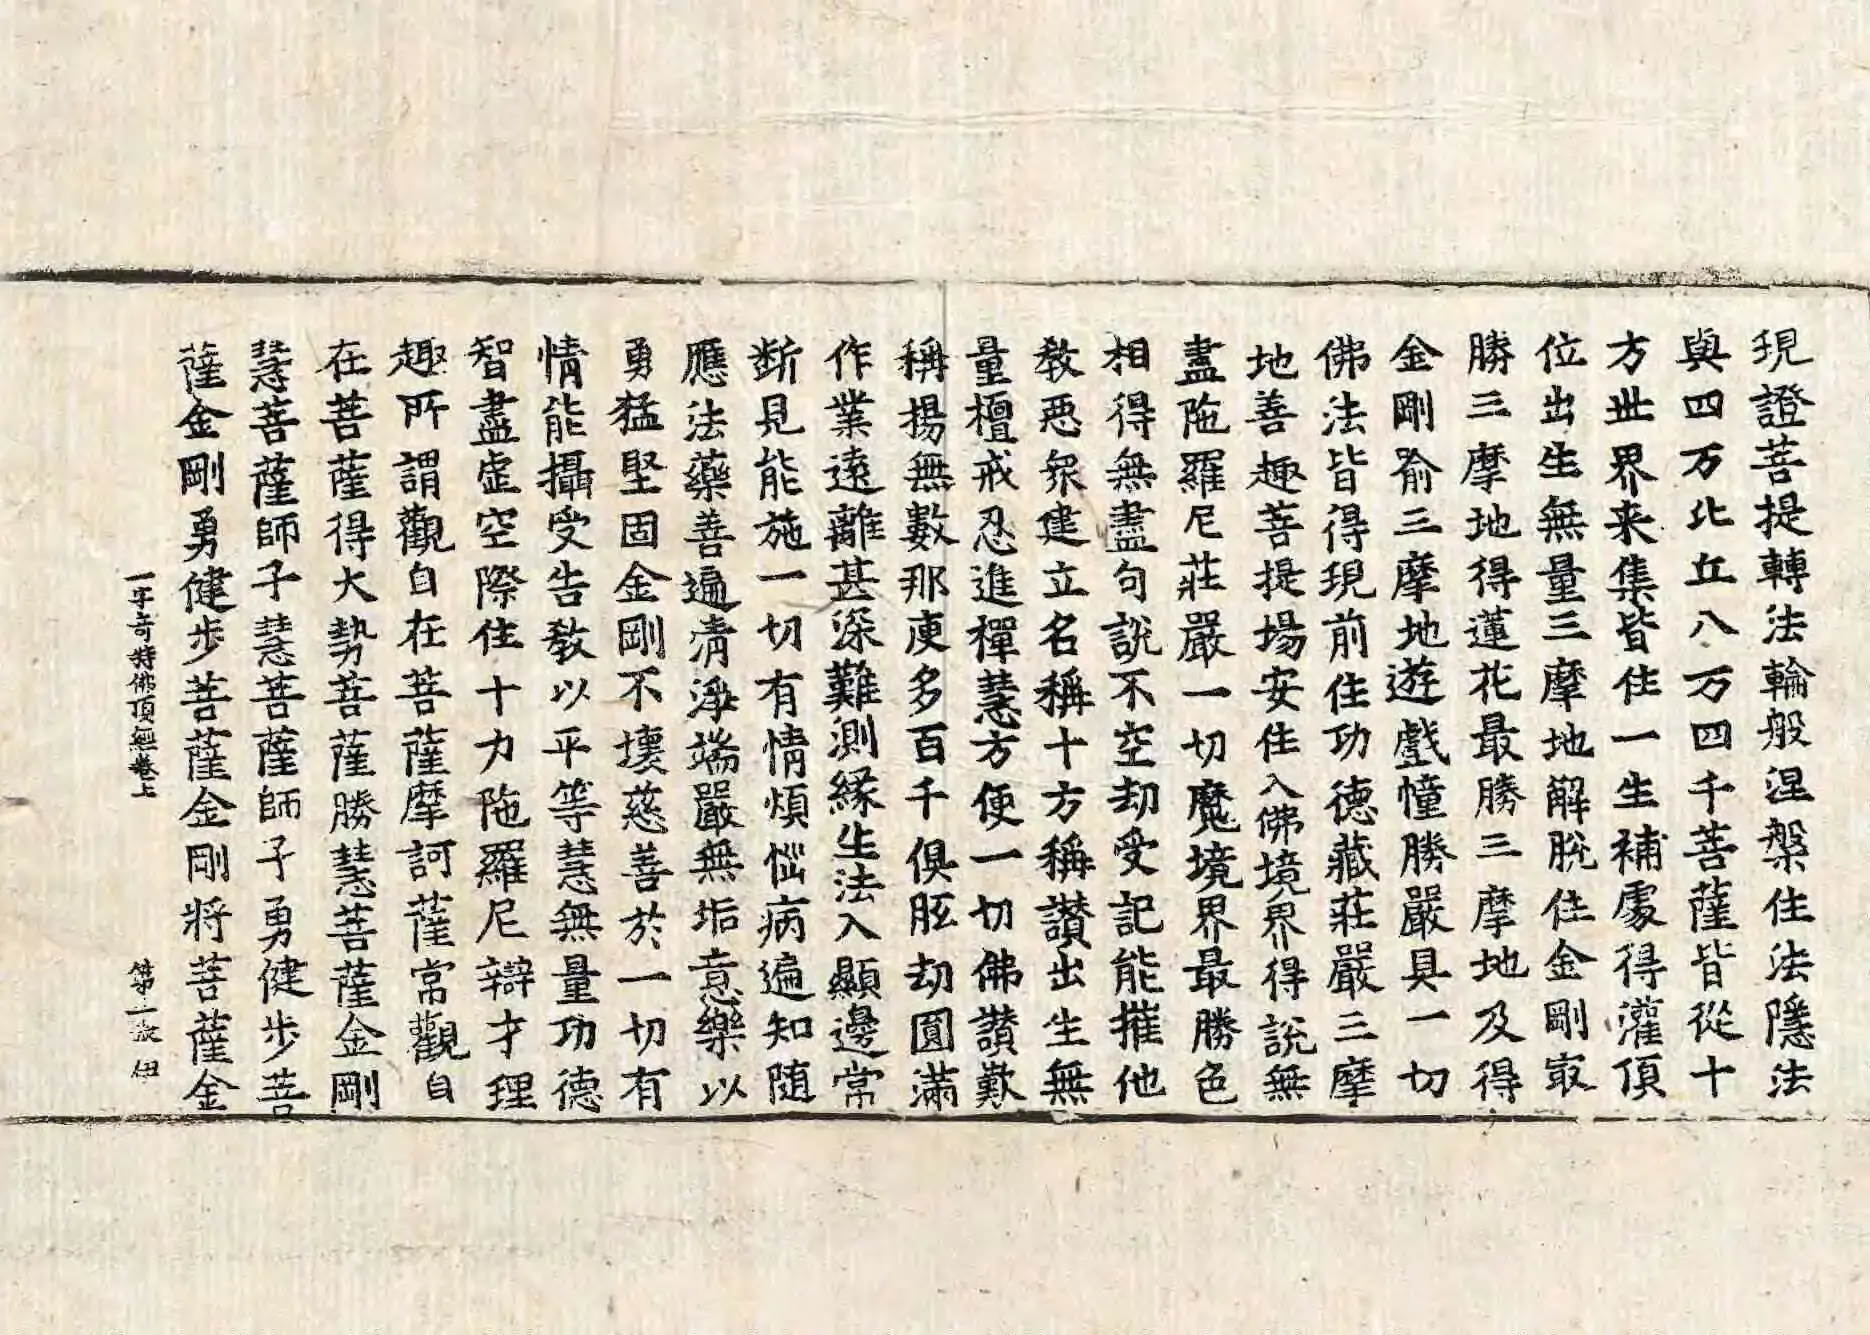 現證菩提轉法輪般涅槃住法隱法
與四万比丘八万四千菩薩皆從十
方世界来集皆住一生補處得灌頂
位出生無量三摩地解脫住金剛㝡
勝三摩地得蓮花最勝三摩地及得
金剛喻三摩地遊戲幢勝嚴具一切
佛法皆得現前住功德藏莊嚴三摩
地善趣菩提場安住入佛境界得說無
盡陁羅尼莊嚴一切魔境界最勝色
相得無盡句說不空劫受記能摧他
教惡衆建立名稱十方稱讃出生無
量檀戒忍進禪慧方便一切佛讃歎
稱揚無數那庾多百千俱胝劫圓滿
作業遠離甚深難測緣生法入顯邊常
斷見能施一切有情煩惱病遍知随
應法藥善遍清淨端嚴無垢意樂以
勇猛堅固金剛不壞慈善於一切有
情能攝受告教以平等慧無量功德
智盡虛空際住十力陁羅尼辯才理
趣所謂觀自在菩薩摩訶薩常觀自
在菩薩得大勢菩薩勝慧菩薩金剛
慧菩薩師子慧菩薩師子勇健步菩
薩金剛勇健步菩薩金剛將菩薩金
一字奇特佛頂經卷上　第二張　伊